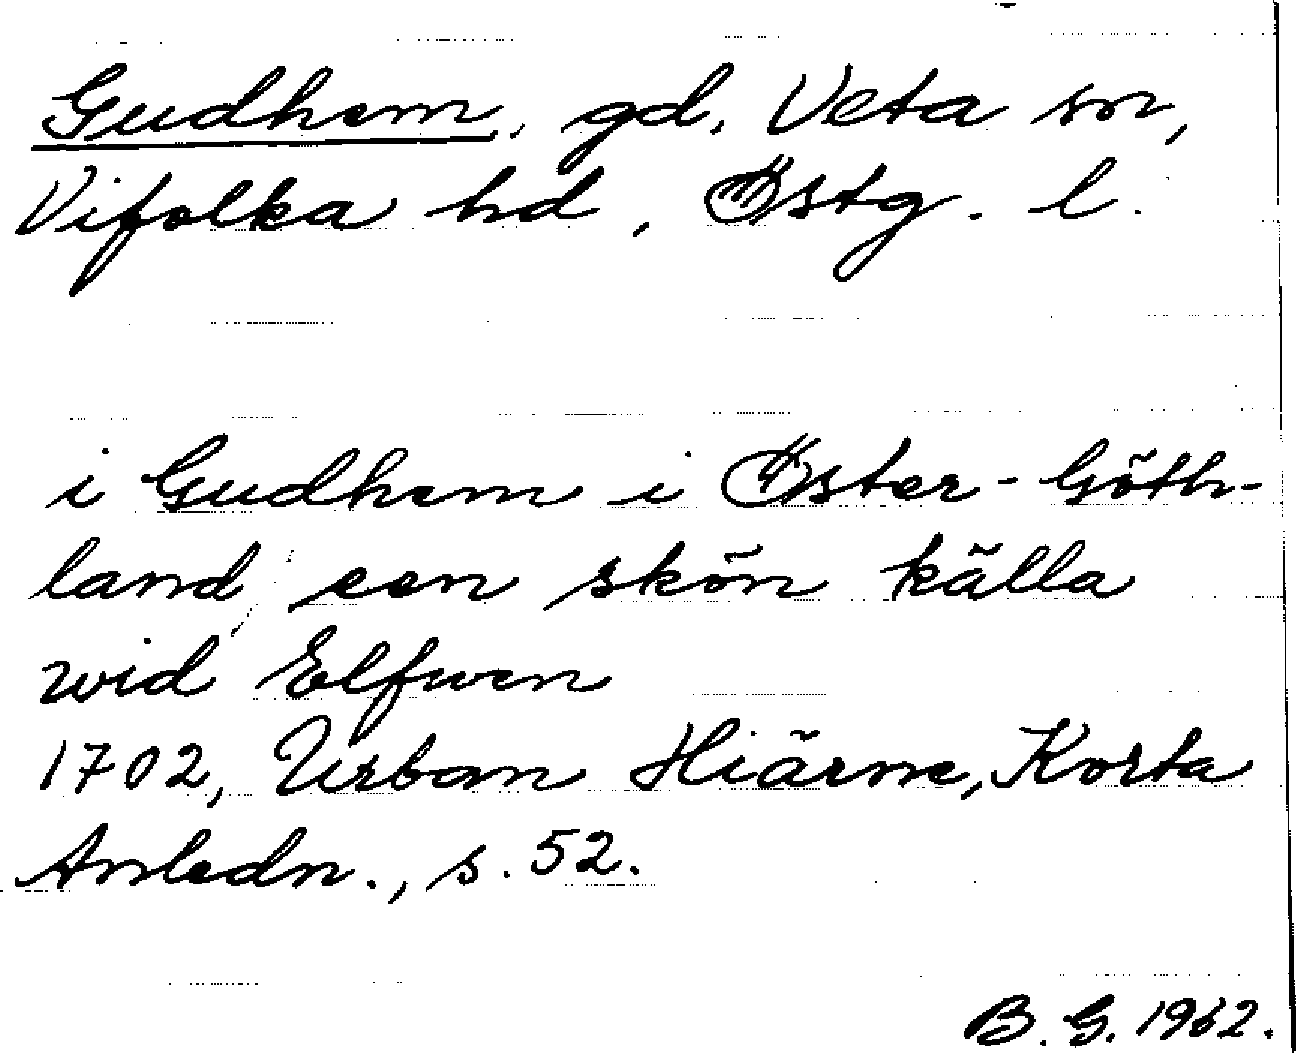 Gudhem, gd, Veta sn,
Vifolka hd, Östg. l.
i Gudhem i Öster-Göth-
land een skön källa
wid Elfwen
1702, Urban Hiärne, Korta
Anledn., s. 52.
B. G. 1962.